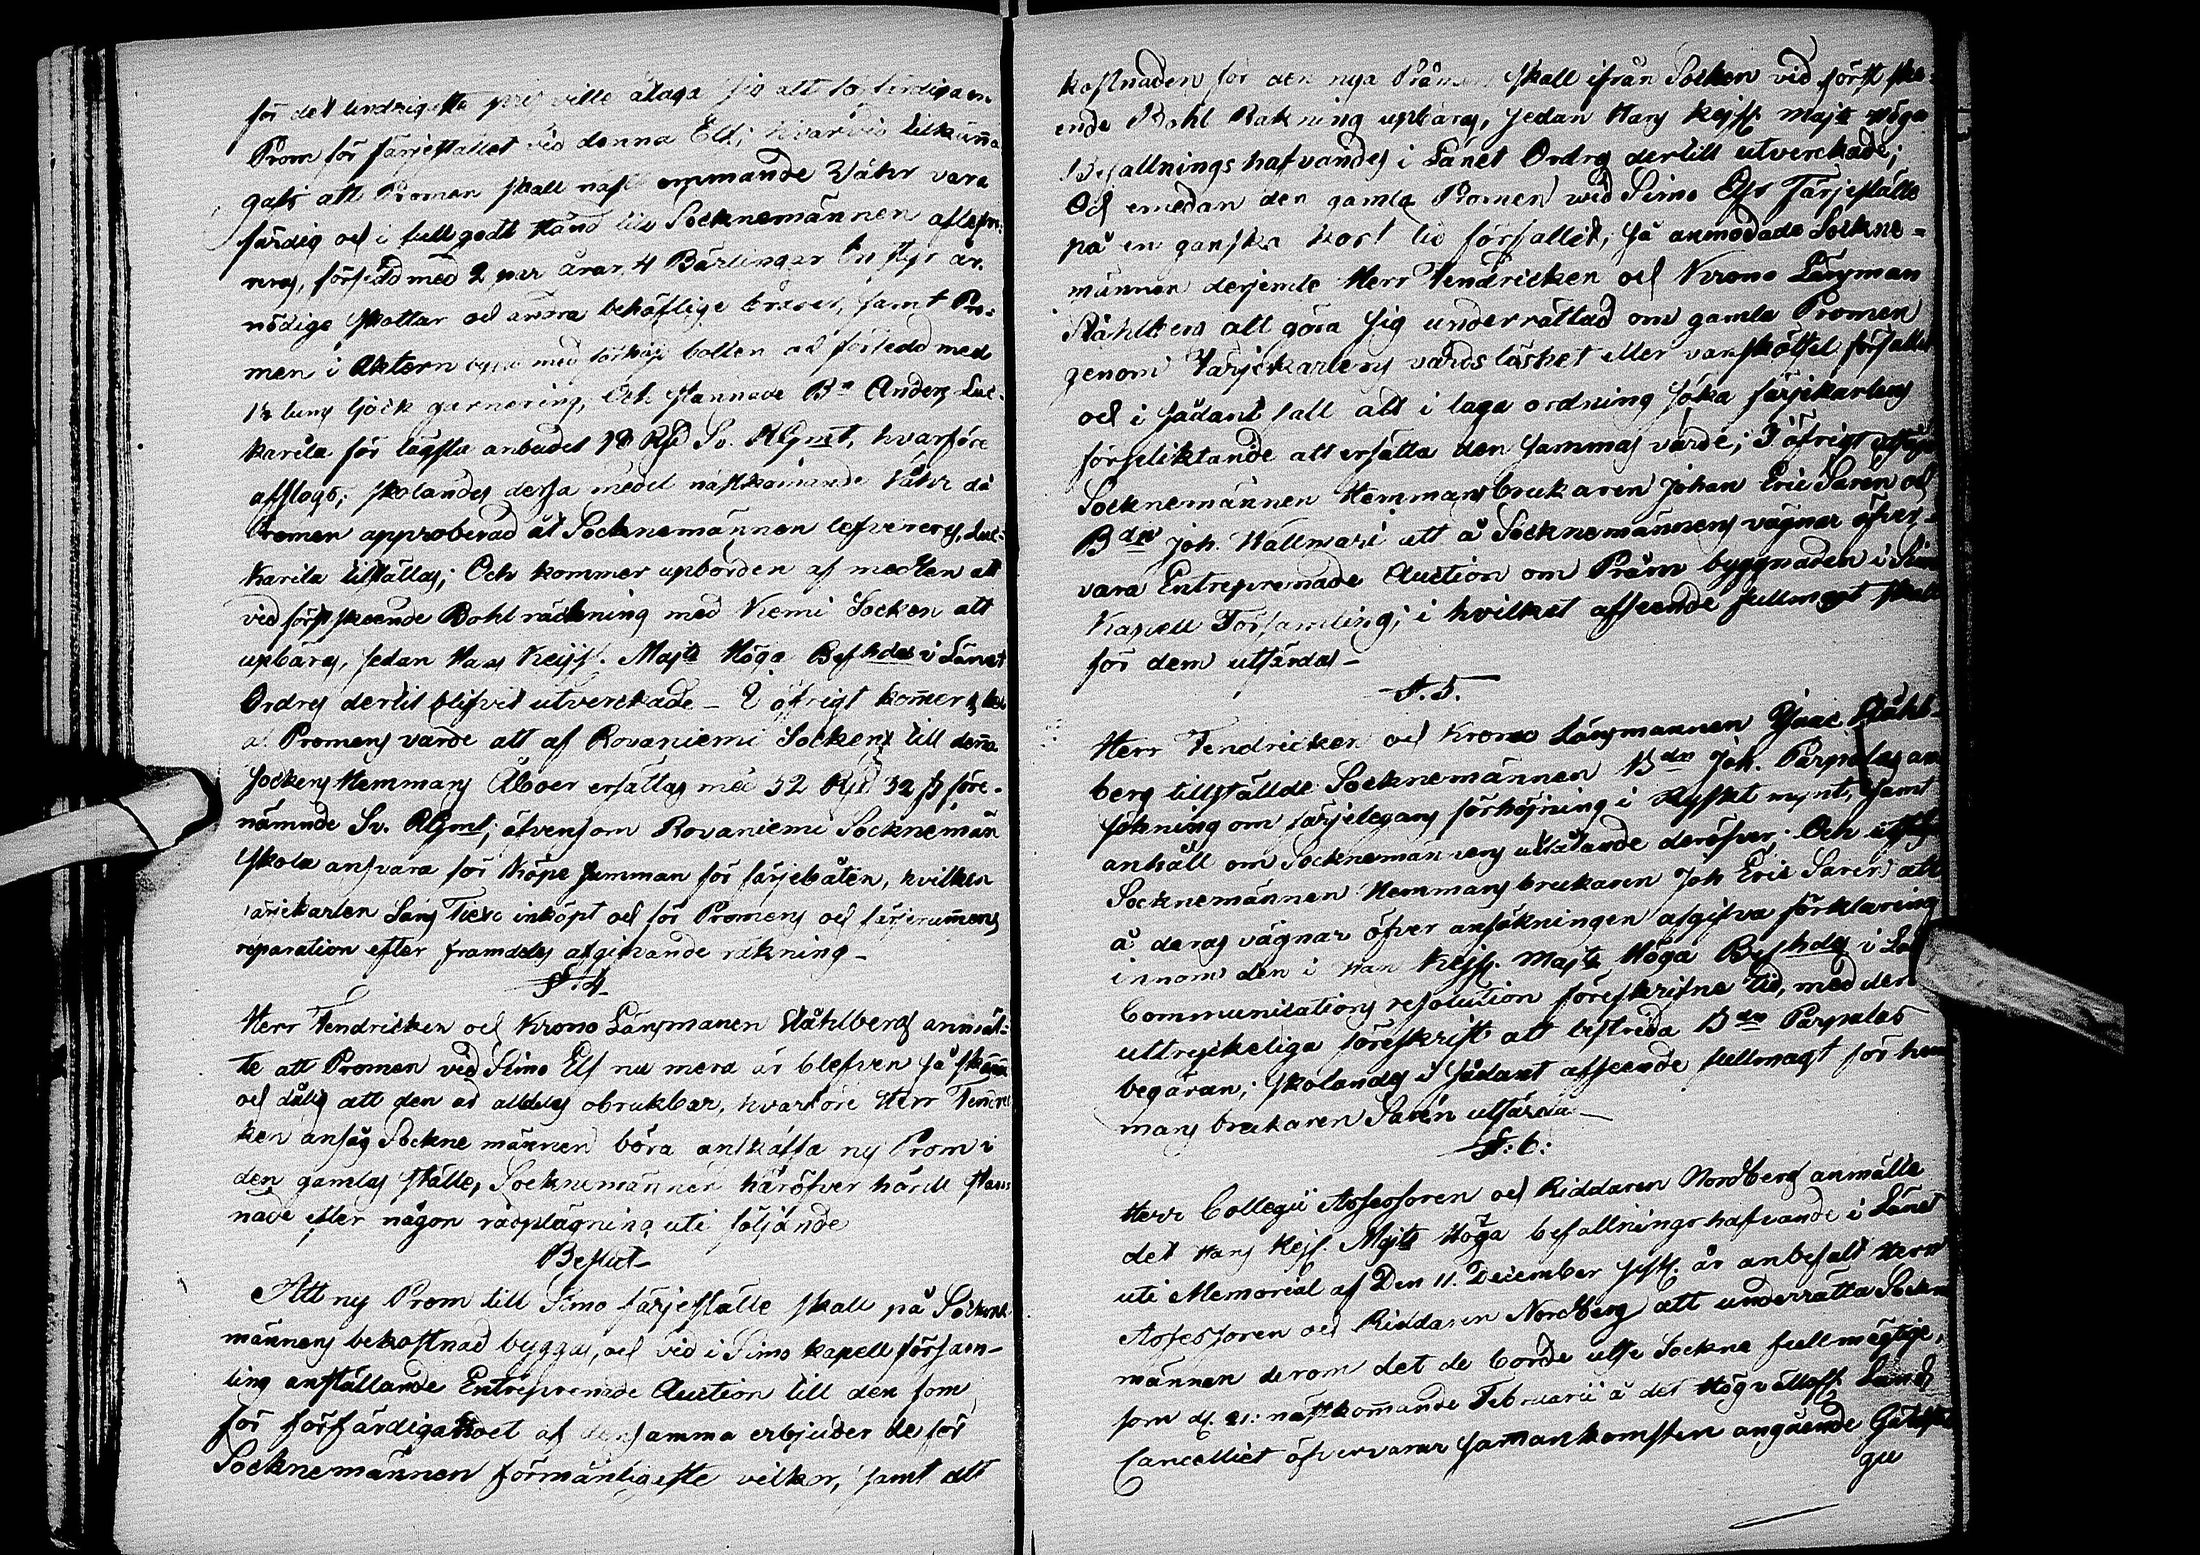 för det lindrigaste pris ville åtaga sig att förfärdiga en
Prom för färjestället vid denna Elf; hvarvid tilkänna
gafs att Promen skall näst kommande Wåhr vara
färdig och i fullgodt stånd till Socknemännen aflefve-
reras, försedd med 2 par åror, 4 Bärlingar En styr år.
nödige skottar och andra behöflige träder, samt Pro-
men i Aktern med botten och försedd med
1½ tums tjock garnering, Och stannade B:n Anders Luc-
karila för lägsta anbudet Rd Sv. RGmt, hvarföre
afslogs; skolandes dessa medel nästkommande Våhr då
Promen approberad åt Socknemännen lefvereras, Luc-
karila tilställas; Och kommer upbörden af medlen att
vid först skeende Bohl räckning med Kemi Socken att
upbäras, sedan Hans Keijs. Majts Höga Befhdes i Länet
Ordres dertil blifvit utverckade – I öfrigt kommer
af Promens värde att af Rovaniemi Sockens till denna
Sockens Hemmans Åboer ersättas med 32 Rd 32 s före-
nämnde Sv. RGmt; äfvensom Rovaniemi Sockneman
skola ansvara för Köpe summan för färjebåten, hvilken
färjekarlen Lars inköpt och för Promens och färjerummens
reparation efter framdeles afgifvande räkning –
§. 4.
Herr Fendricken och Krono Länsmannen Ståhlberg anmäl-
te att Promen vid Simo Elf nu mera är blefven så skämd
och dålig att den är alldeles obrukbar, hvarföre Herr Fendric
ken ansåg Sockne männen böra anskaffa ny Prom i
den gamlas ställe, Socknemännen häröfver hörde stan-
nade efter någon rådplägning uti följande
Beslut –
Att ny Prom till Simo färjeställe skall på Sockne
männens bekostnad byggas, och vid i Simo kapell försam-
ling anställande Entreprenade Auction till den som
för förfärdigandet af densamma erbjuder de för
Socknemännen förmånligaste vilkor, samt att
kostnaden för den nya Pråmen skall ifrån Socken vid först ske-
ende Bohl Räkning upbäras, sedan Hans Kejss. Majts Höga
Befallningshafvandes i Länet Ordres dertill utverckade;
Och emedan den gamla Promen wid Simo Elfs Färjeställe
på en ganska kort tid förfallit; så anmodade Sockne-
männen derjemte Herr Fendricken och Krono Länsman
Ståhlberg att göra sig underrättad om gamla Promen
genom Färjekarlens vårdslöshet eller vanskötsel förfallit
och i sådant fall att i laga ordning söka färjekarlens
förpliktande att ersätta den sammas värde; I öfrigt utsågo
Socknemännen Hemmansbrukaren Johan Eric Sarén och
Bdn Joh. Hällmari att å Socknemännens vägnar öfver-
vara Entreprenade Auction om Pråm byggnaden i Simo
Kapell Församling; i hvilket afseende fullmagt skall
för dem utfärdas –
§. 5.
Herr Fendricken och Krono Länsmannen Isaac Ståhl-
berg tillställde Socknemännen Bdn Joh. Parpalas an
sökning om färjelegans förhöjning i Ryskt mynt, samt
anhöll om Socknemännens utlåtande deröfver. Och utsågo
Socknemännen Hemmans brukaren Joh Eric Sarén att
å deras vägnar öfver ansökningen afgifva förklaring
innom den i Hans Kejss. Majts Höga Befhdes i Länet
Communications resolution föreskrifne tid, med den
uttryckeliga föreskrift att bestrida Bdn Parpalas
begäran; skolandes i sådant afseende fullmagt för hem
mans brukaren Sarén utfärdas –
§: 6:
Herr Collegii Assessoren och Riddaren Nordberg anmälte
det Hans Kejs. Majts Höga befallningshafvande i Länet
uti Memorial af Den 11. December sistl. år anbefalt Herr
Assessoren och Riddaren Nordberg att underrätta Sockne
männen derom det de borde utse Sockne fullmägtige,
som d. 21: nästkommande Februarii å det Högvällofl. Lands
Cancelliet öfvervarar sammankomsten angående Gästgif
gu